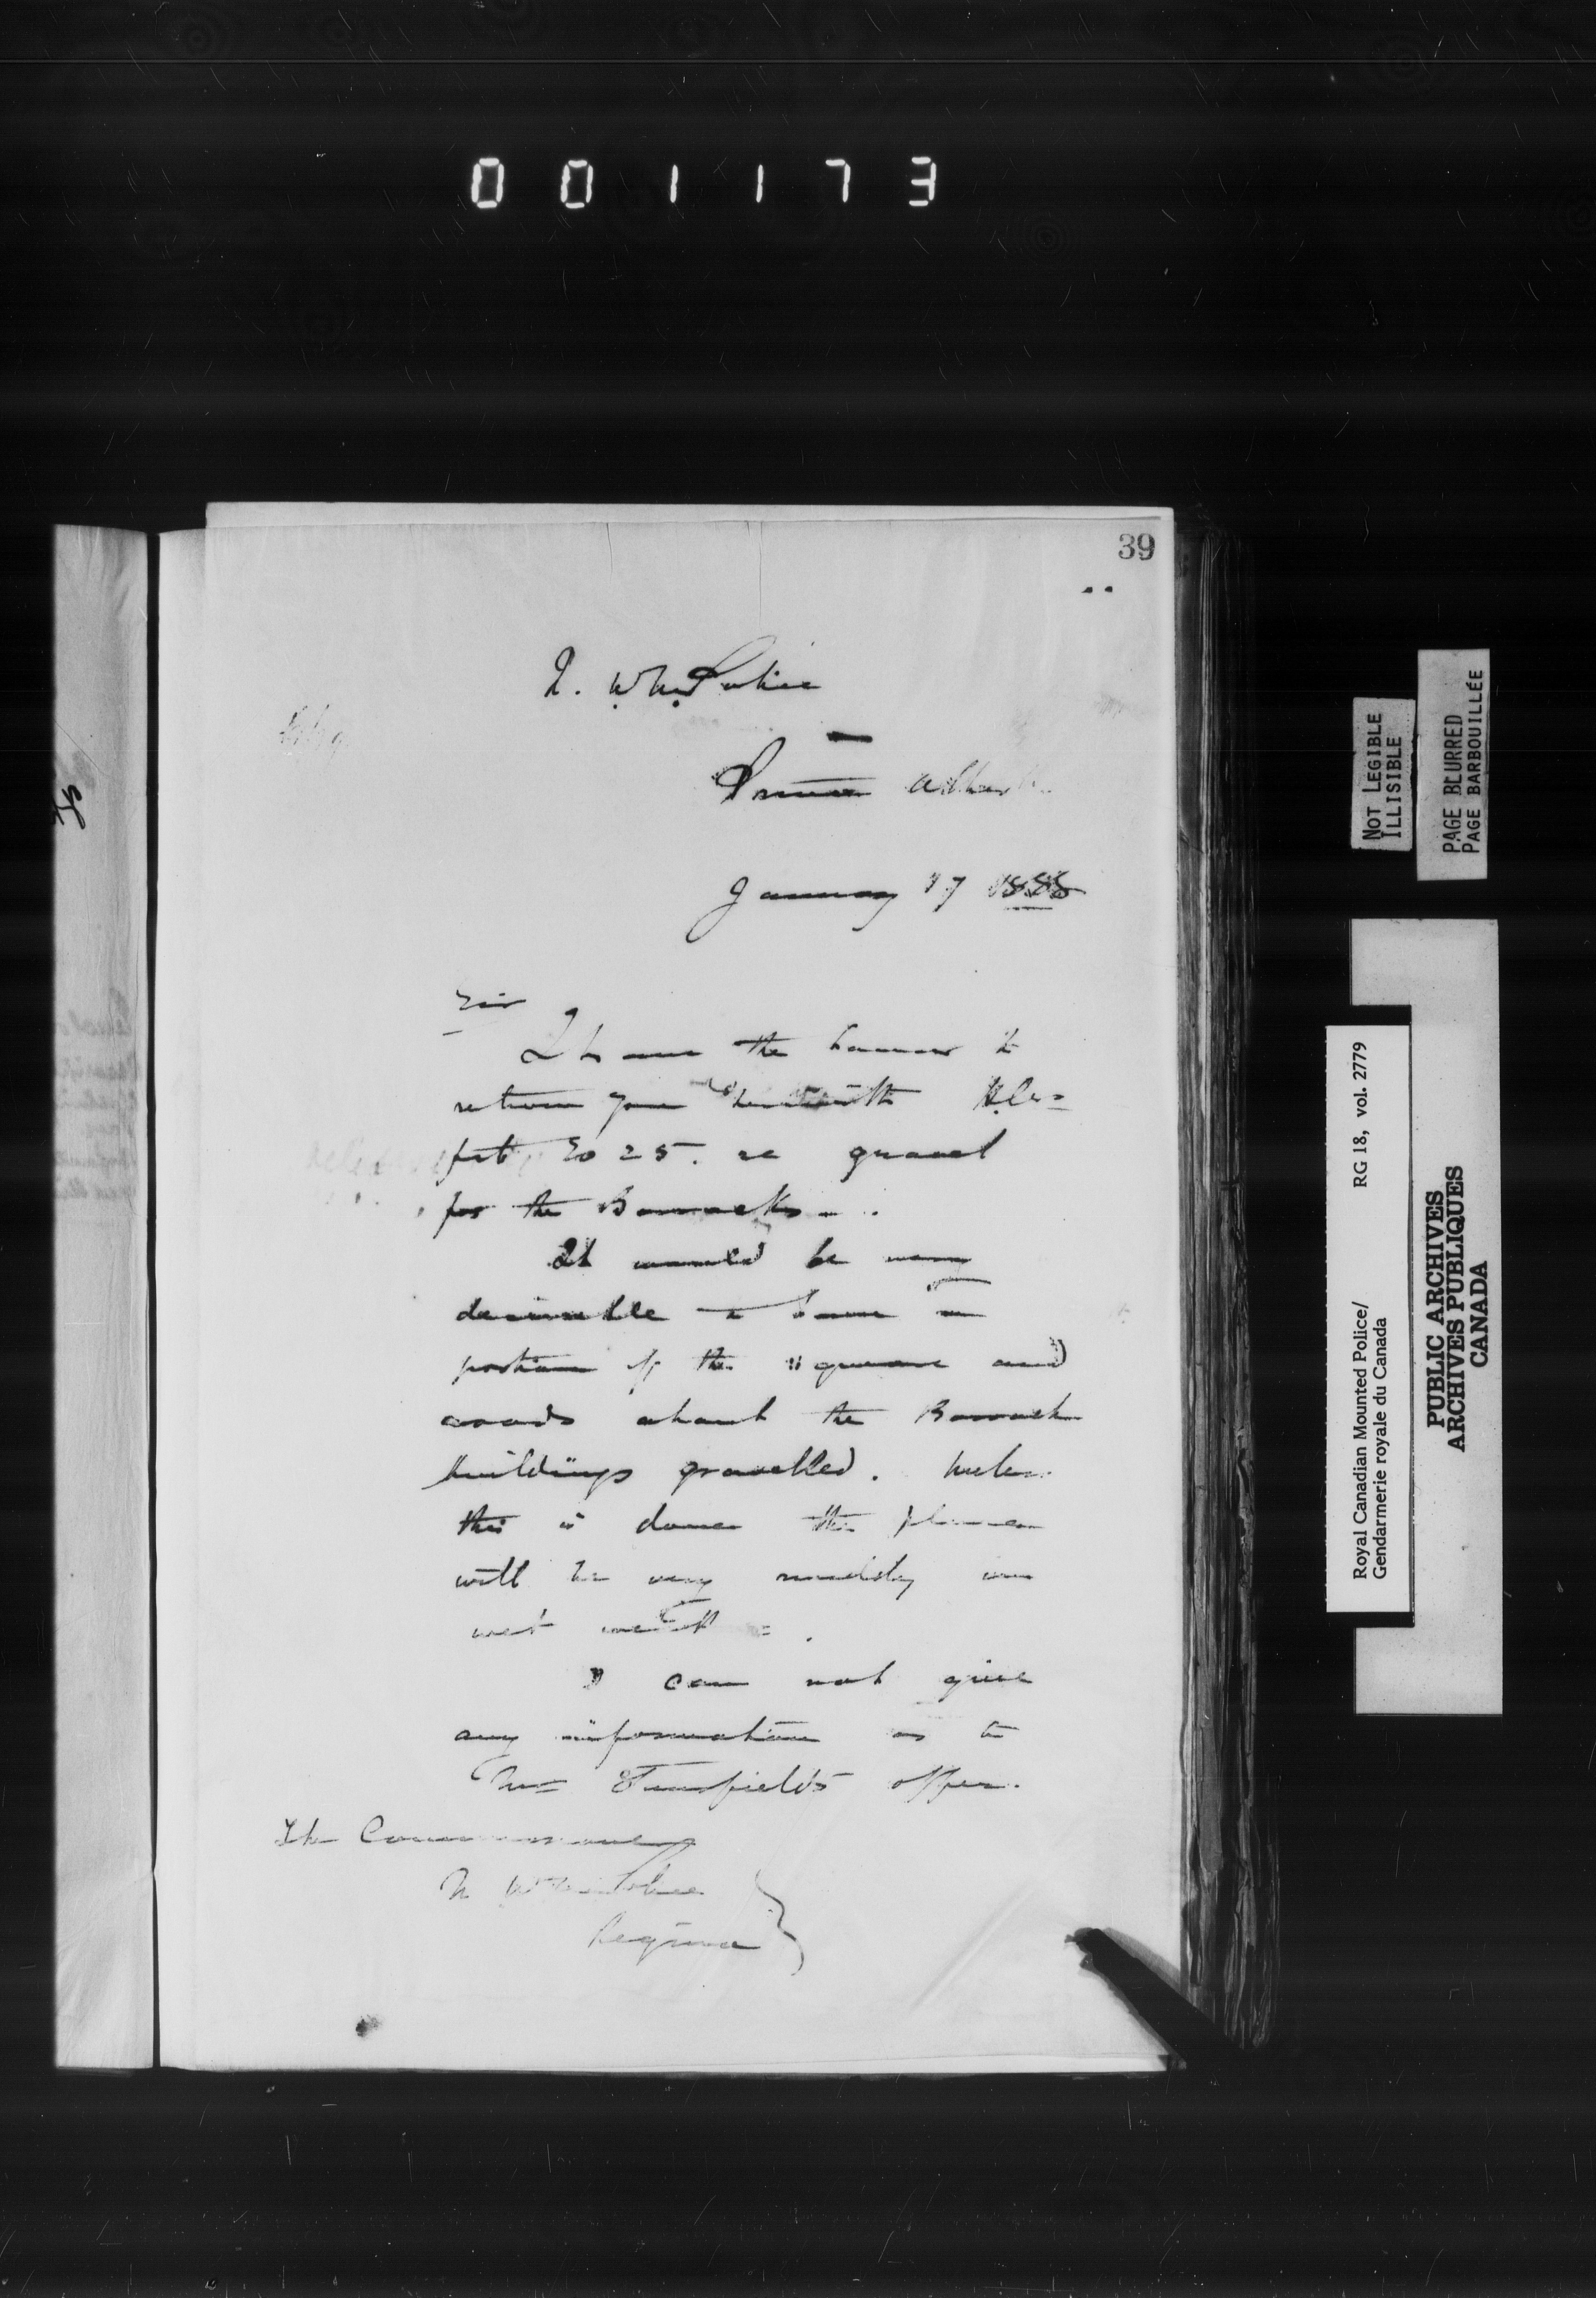 001173
39
N. W. M. Police
Prince Albert
January 17 1888
Sir
I have the honour to
return you herewith
25. re gravel
for the Barracks.
It would be very
desirable to have a
portion of the square and
roads about the Barrack
buildings gravelled. Unless
this is done the place
will be very muddy in
wet weather.
I can not give
any information as to
offer.
The Commissioner
N W M Police
Regina
NOT LEGIBLE
ILLISIBLE
PAGE BLURRED
PAGE BARBOUILLÉE
Royal Canadian Mounted Police/ RG 18, vol. 2779
Gendarmerie royale du Canada
PUBLIC ARCHIVES
ARCHIVES PUBLIQUES
CANADA